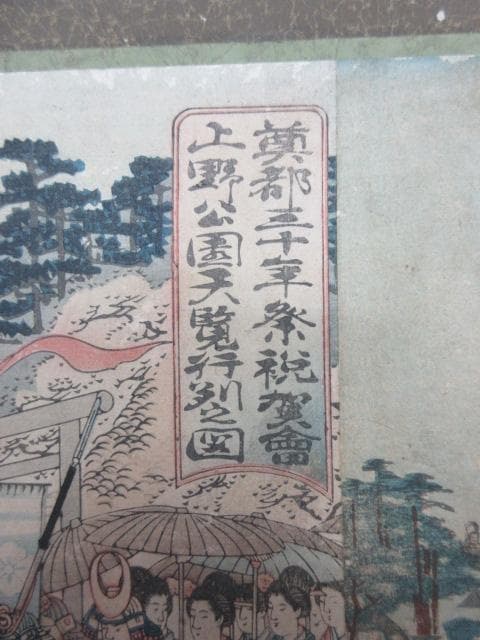 奠都三十年祭祝賀會
上野公園天覧行列之図